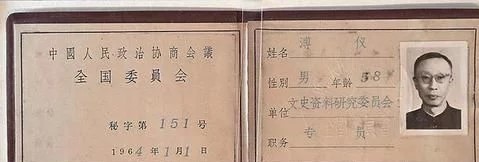 中國人民政治协商会議
全国委員会
秘字第 151 号
1964年1月1日
姓名 溥仪
性别 男 年龄 58
单位 文史资料研究委員会
职务 专员